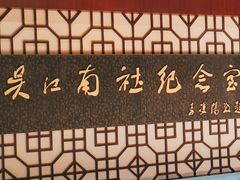 吴江南社纪念室